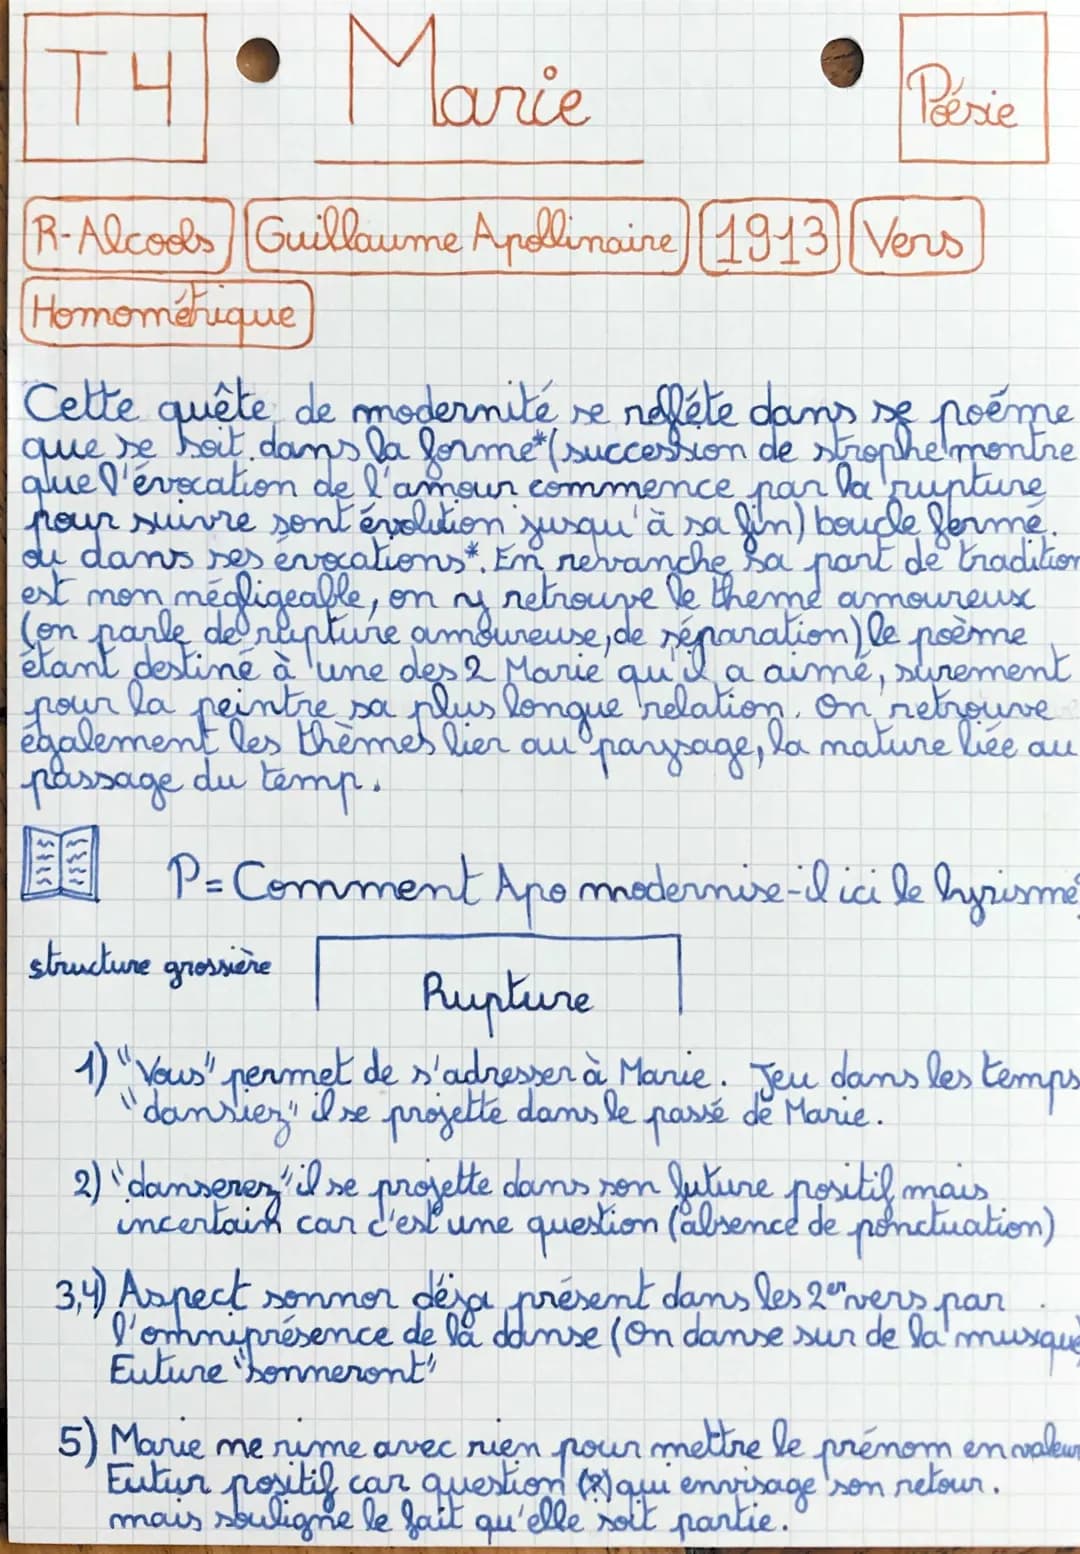 T4
Marie
Poésie
R-Alcools
Guillaume Apollinaire
1913
Vers
Homométrique
Cette quête de modernité se refléte dans se poéme
que se soit dans la forme*(succession de strophe montre
que l'évocation de l'amour commence par la rupture
pour suivre sont évolution jusqu'à sa fin) boucle fermé.
ou dans ses évocations*. En revanche sa part de tradition
est non négligeable, on ny retrouve le theme amoureux
(on parle de rupture amoureuse, de séparation) le poème
étant destiné à une des 2 Marie qu'il a aimé, surement
pour la peintre sa plus longue relation. On retrouve
également les thèmes lier au paysage, la nature liée au
passage du temp.
P= Comment Apo modernise-il ici le lyrisme?
structure grossière
Rupture
1) "Vous" permet de s'adresser à Marie. Jeu dans les temps
"dansiez" il se projette dans le passé de Marie.
2) "danserez" il se projette dans son future positif mais
incertain car c'est une question (absence de ponctuation)
3,4) Aspect sonnor déja présent dans les 2er vers par
l'omniprésence de la danse (On danse sur de la musique)
Future "sonneront"
5) Marie ne rime avec rien pour mettre le prénom en valeur
Futur positif car question (?) qui envisage son retour.
mais souligne le fait qu'elle soit partie.